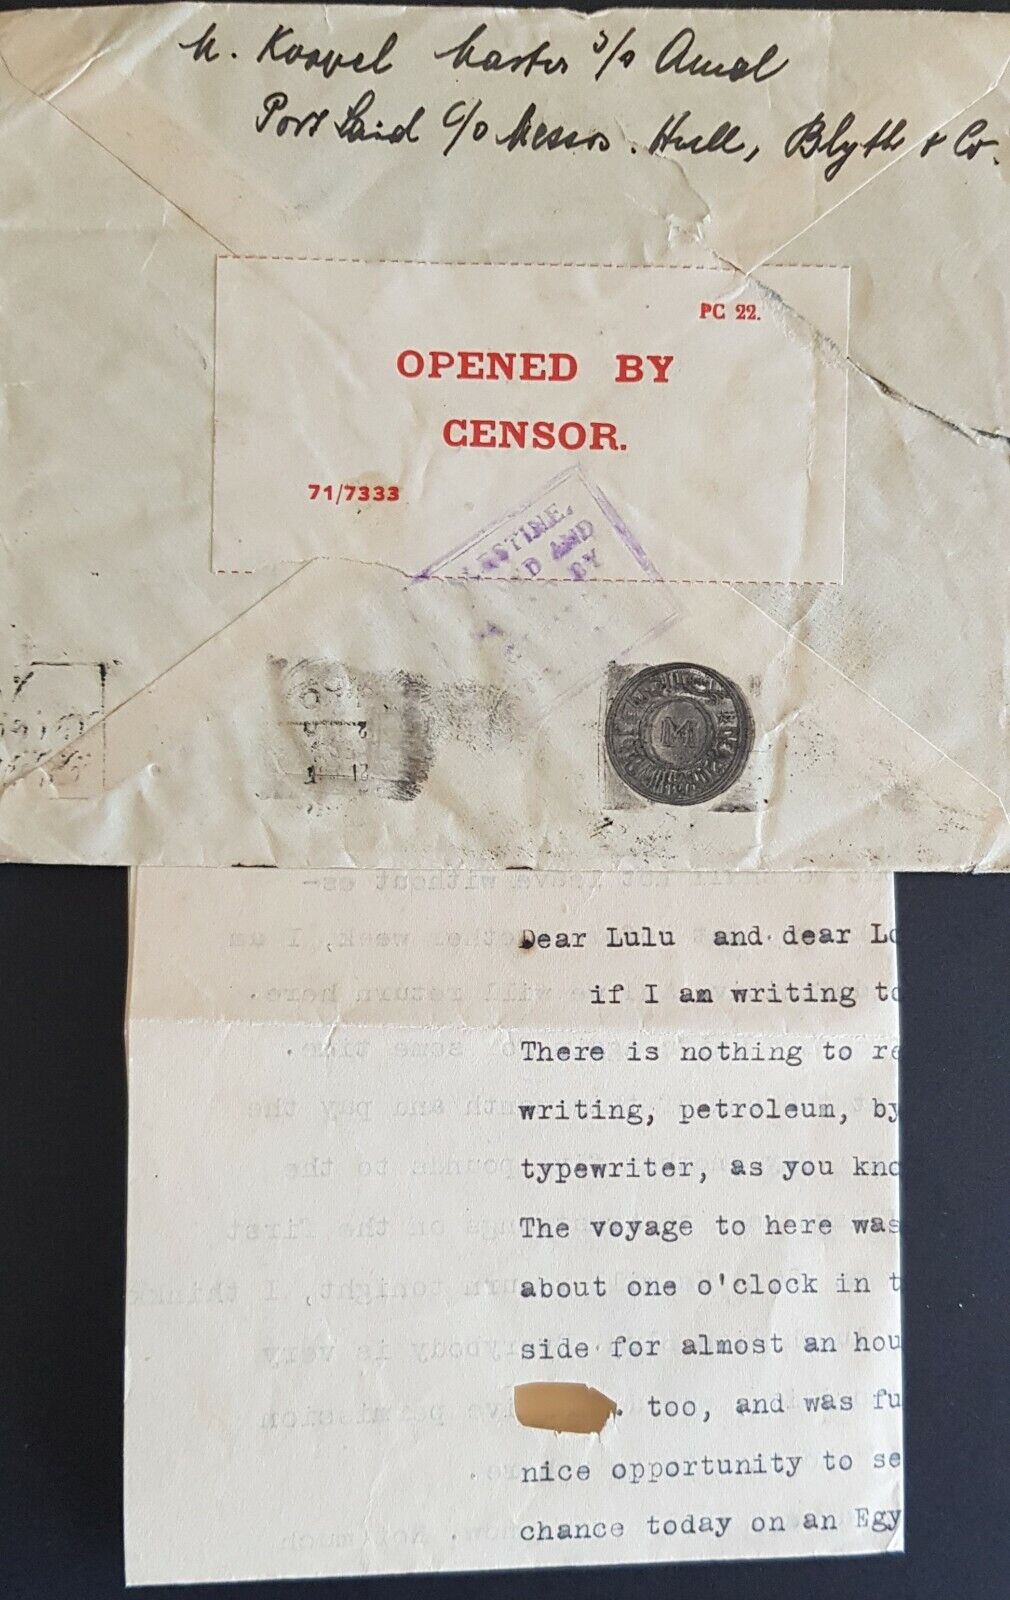 M. Koovel Master S/s Amal
Port Said C/o Messrs. Hull, Blyth & Co.
PC 22.
OPENED BY
CENSOR.
71/7333
AND
BY
M
Dear Lulu and dear Lo
if I am writing to
There is nothing to re
writing, petroleum, by
typewriter, as you kno
The voyage to here was
about one o'clock in t
side for almost an hou
. too, and was fu
nice opportunity to se
chance today on an Egy